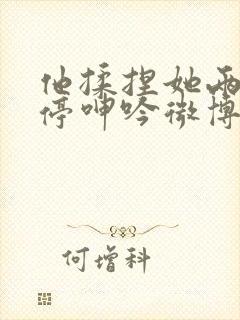 他揉捏她两
停呻吟微博
何增科